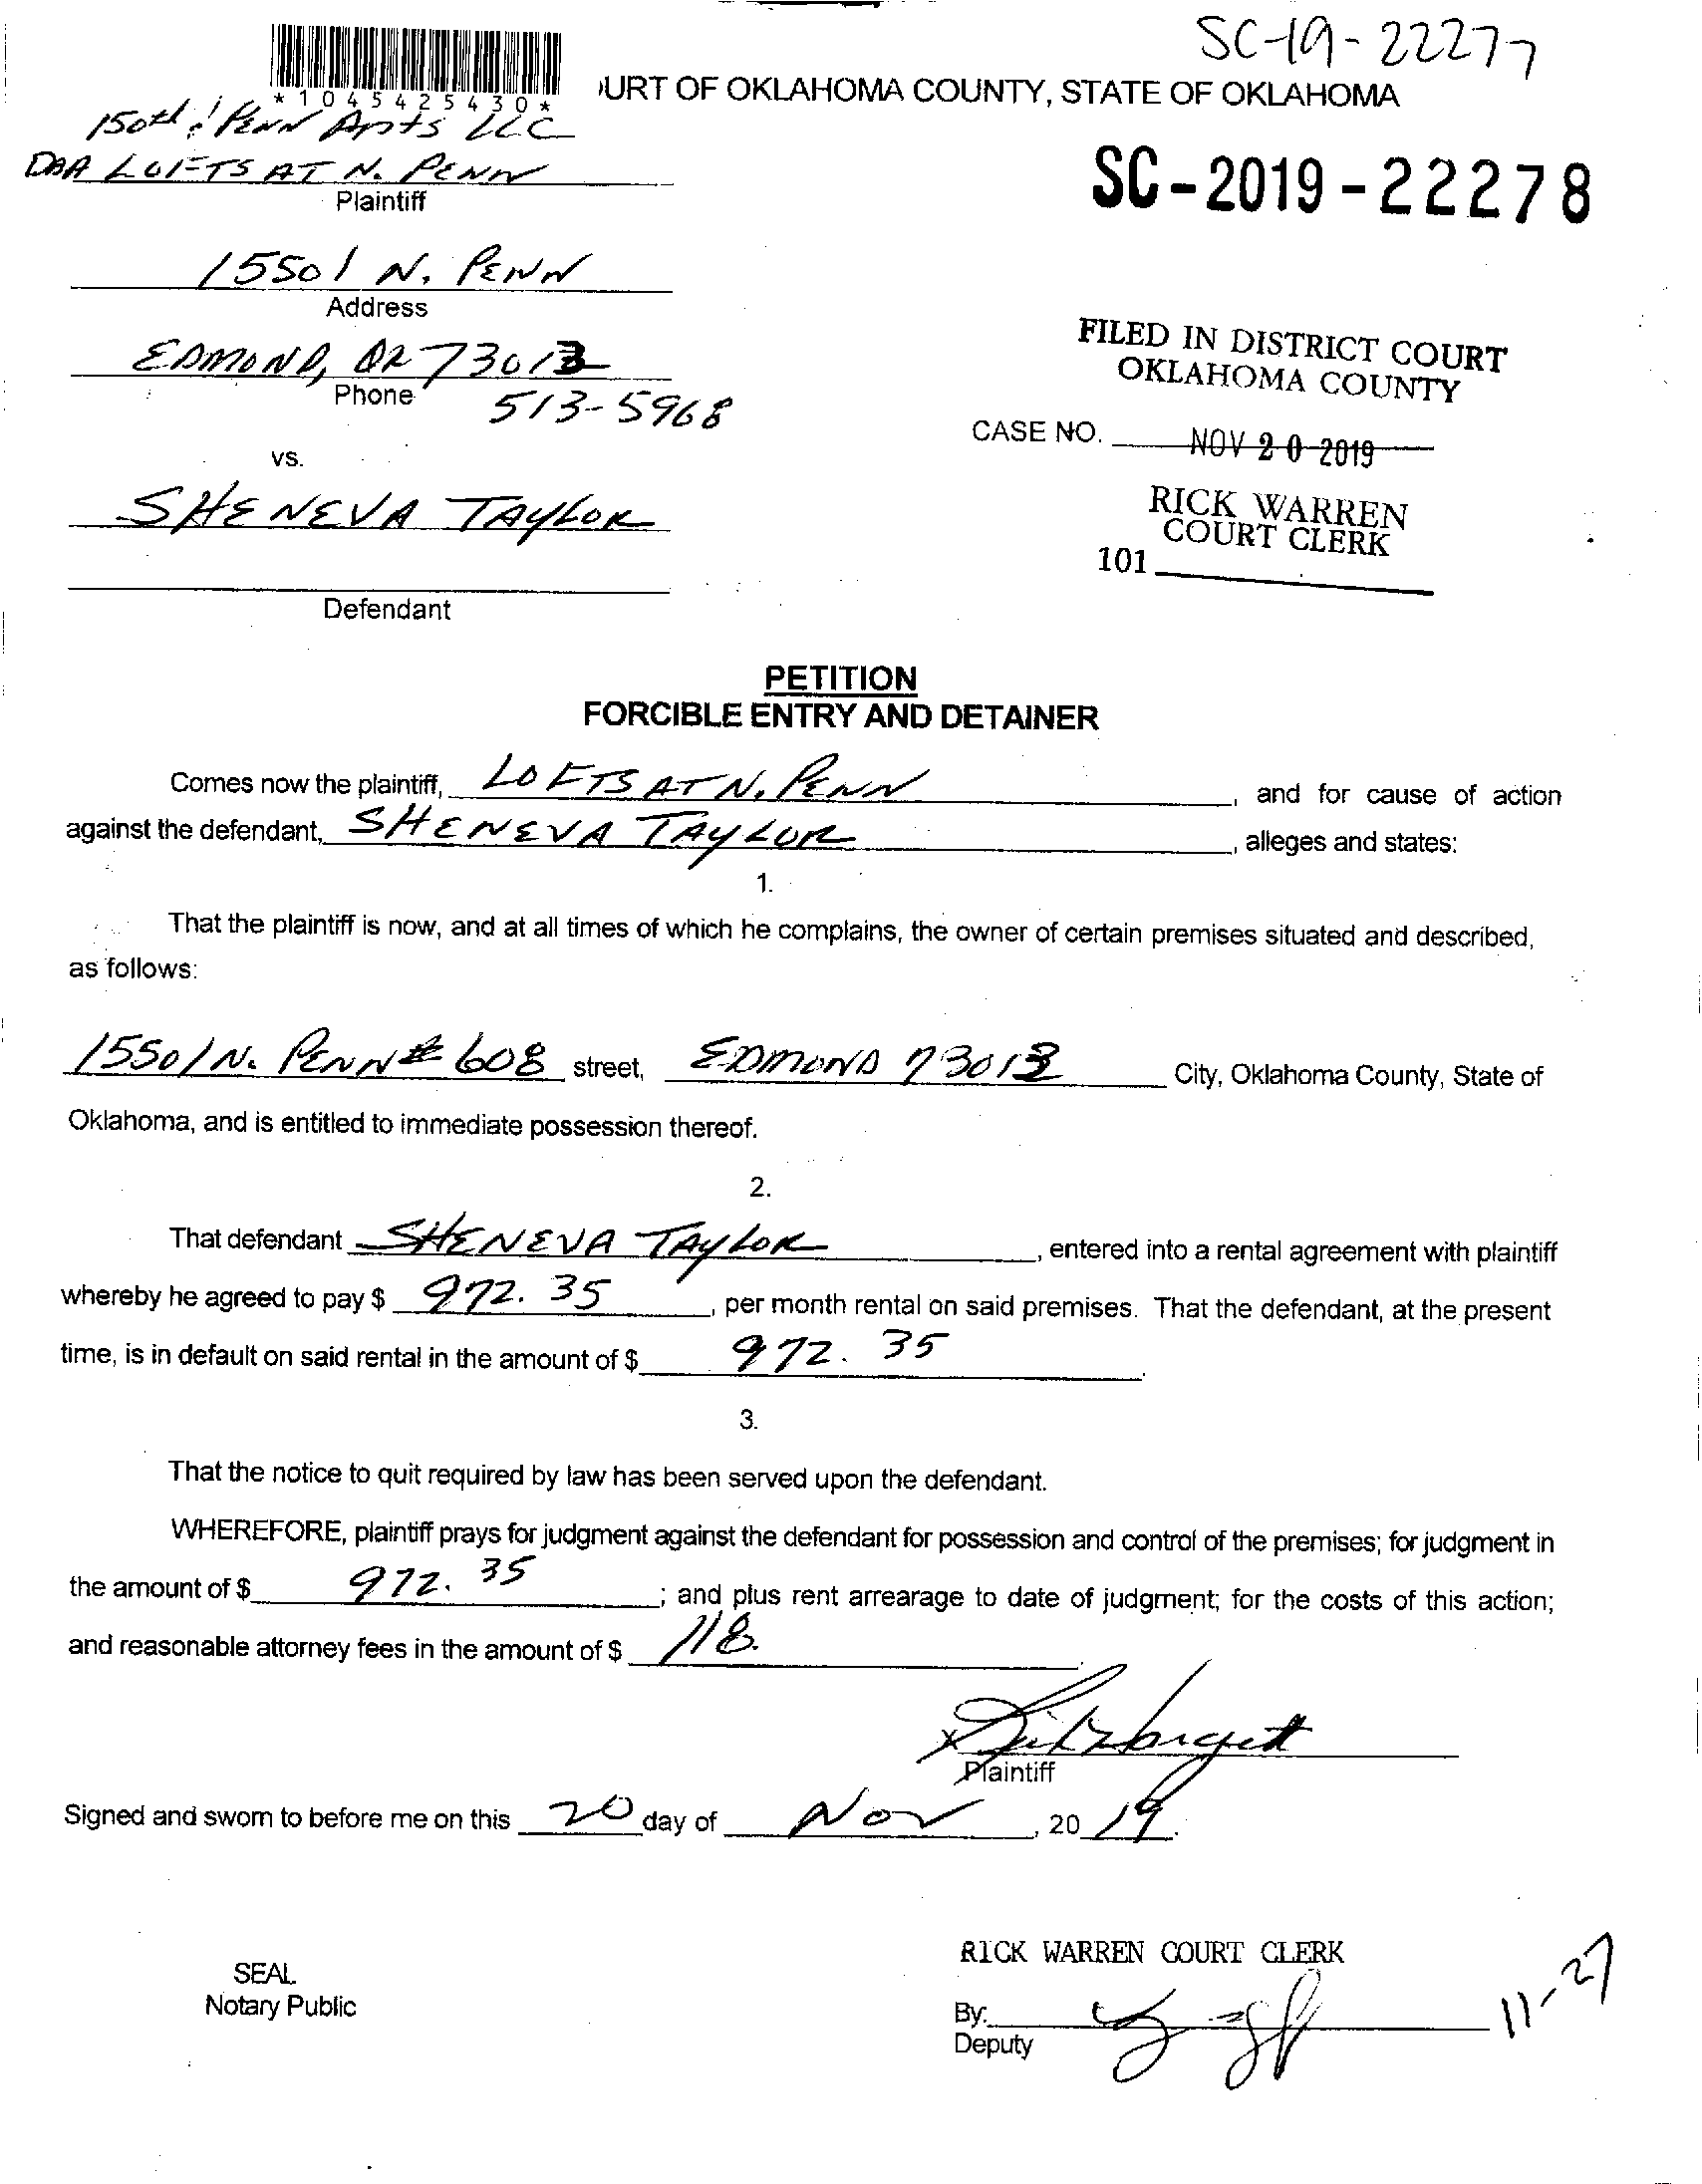 SC-19-22277
*1045425430*
URT OF OKLAHOMA COUNTY, STATE OF OKLAHOMA
150th & PENN Apts LLC
DBA LOFTS AT N. PENN
Plaintiff
SC-2019-22278
15501 N. PENN
Address
EDMOND, OK 73013
Phone
513-5968
FILED IN DISTRICT COURT
OKLAHOMA COUNTY
CASE NO.
NOV 20 2019
vs.
SHENEVA TAYLOR
RICK WARREN
COURT CLERK
101
Defendant
PETITION
FORCIBLE ENTRY AND DETAINER
Comes now the plaintiff, LOFTS AT N. PENN, and for cause of action
against the defendant, SHENEVA TAYLOR, alleges and states:
1.
That the plaintiff is now, and at all times of which he complains, the owner of certain premises situated and described,
as follows:
15501 N. PENN # 608 street, EDMOND 73013 City, Oklahoma County, State of
Oklahoma, and is entitled to immediate possession thereof.
2.
That defendant SHENEVA TAYLOR, entered into a rental agreement with plaintiff
whereby he agreed to pay $ 972.35, per month rental on said premises. That the defendant, at the present
time, is in default on said rental in the amount of $ 972.35.
3.
That the notice to quit required by law has been served upon the defendant.
WHEREFORE, plaintiff prays for judgment against the defendant for possession and control of the premises; for judgment in
the amount of $ 972.35; and plus rent arrearage to date of judgment; for the costs of this action;
and reasonable attorney fees in the amount of $ 118.
X
Plaintiff
Signed and sworn to before me on this 20 day of Nov, 20 19.
RICK WARREN COURT CLERK
SEAL
Notary Public
By:
Deputy
11-27